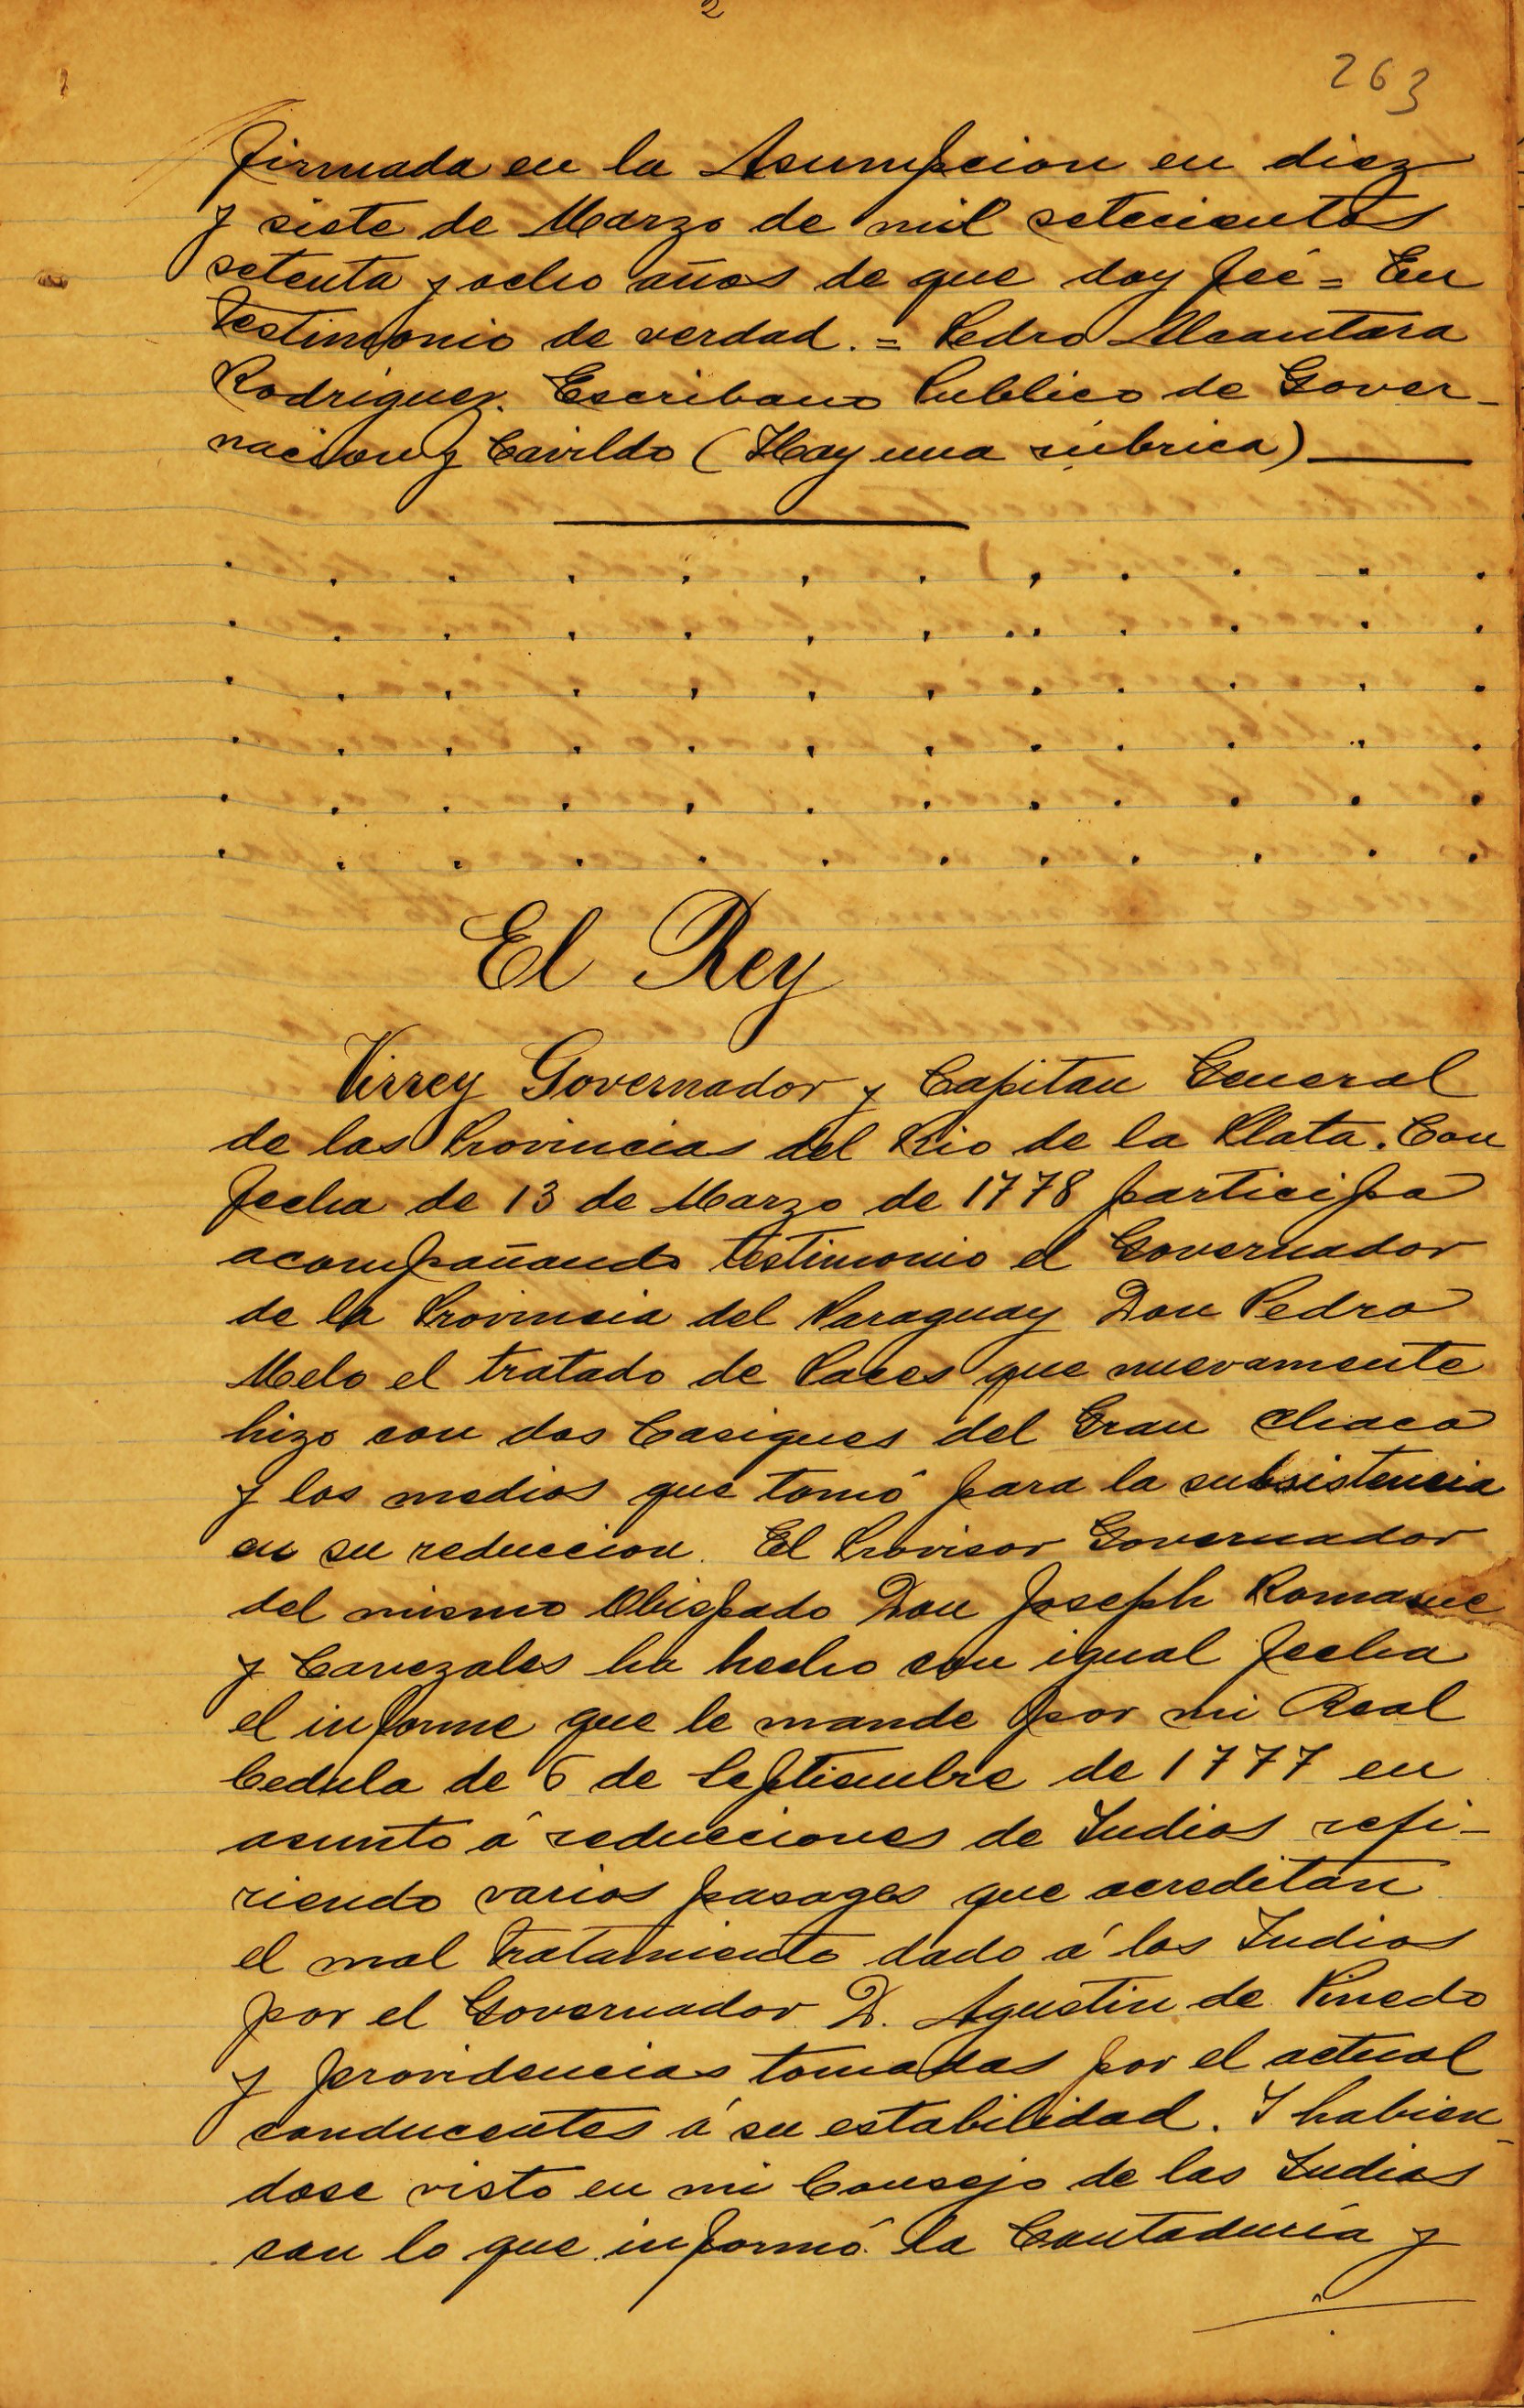 2
263
firmada en la Asumpcion en diez
y siete de Marzo de mil setecientos
setenta y ocho años de que doy feé = En
Testimonio de verdad. = Pedro Alcantara
Rodriguez. Escribano Publico de Gover-
nacion y Cavildo (Hay una rúbrica)
El Rey
Virrey Governador y Capitan General
de las Provincias del Rio de la Plata. Con
fecha de 13 de Marzo de 1778 participa
acompañando testimonio el Governador
de la Provincia del Paraguay Don Pedro
Melo el tratado de Paces que nuevamente
hizo con dos Casiques del Gran Chaco
y los medios que tomó para la subsistencia
en su reduccion. El Provisor Governador
del mismo Obispado Don Joseph
y Cavezales ha hecho con igual fecha
el informe que le mande por mi Real
Cedula de 6 de Septiembre de 1777 en
asunto á reducciones de Indios refi-
riendo varios pasages que acreditan
el mal tratamiento dado á los Indios
por el Governador D. Agustin de Pinedo
y providencias tomadas por el actual
conducentes á su estabilidad. I habien-
dose visto en mi Consejo de las Indias
con lo que informó la Contaduria y